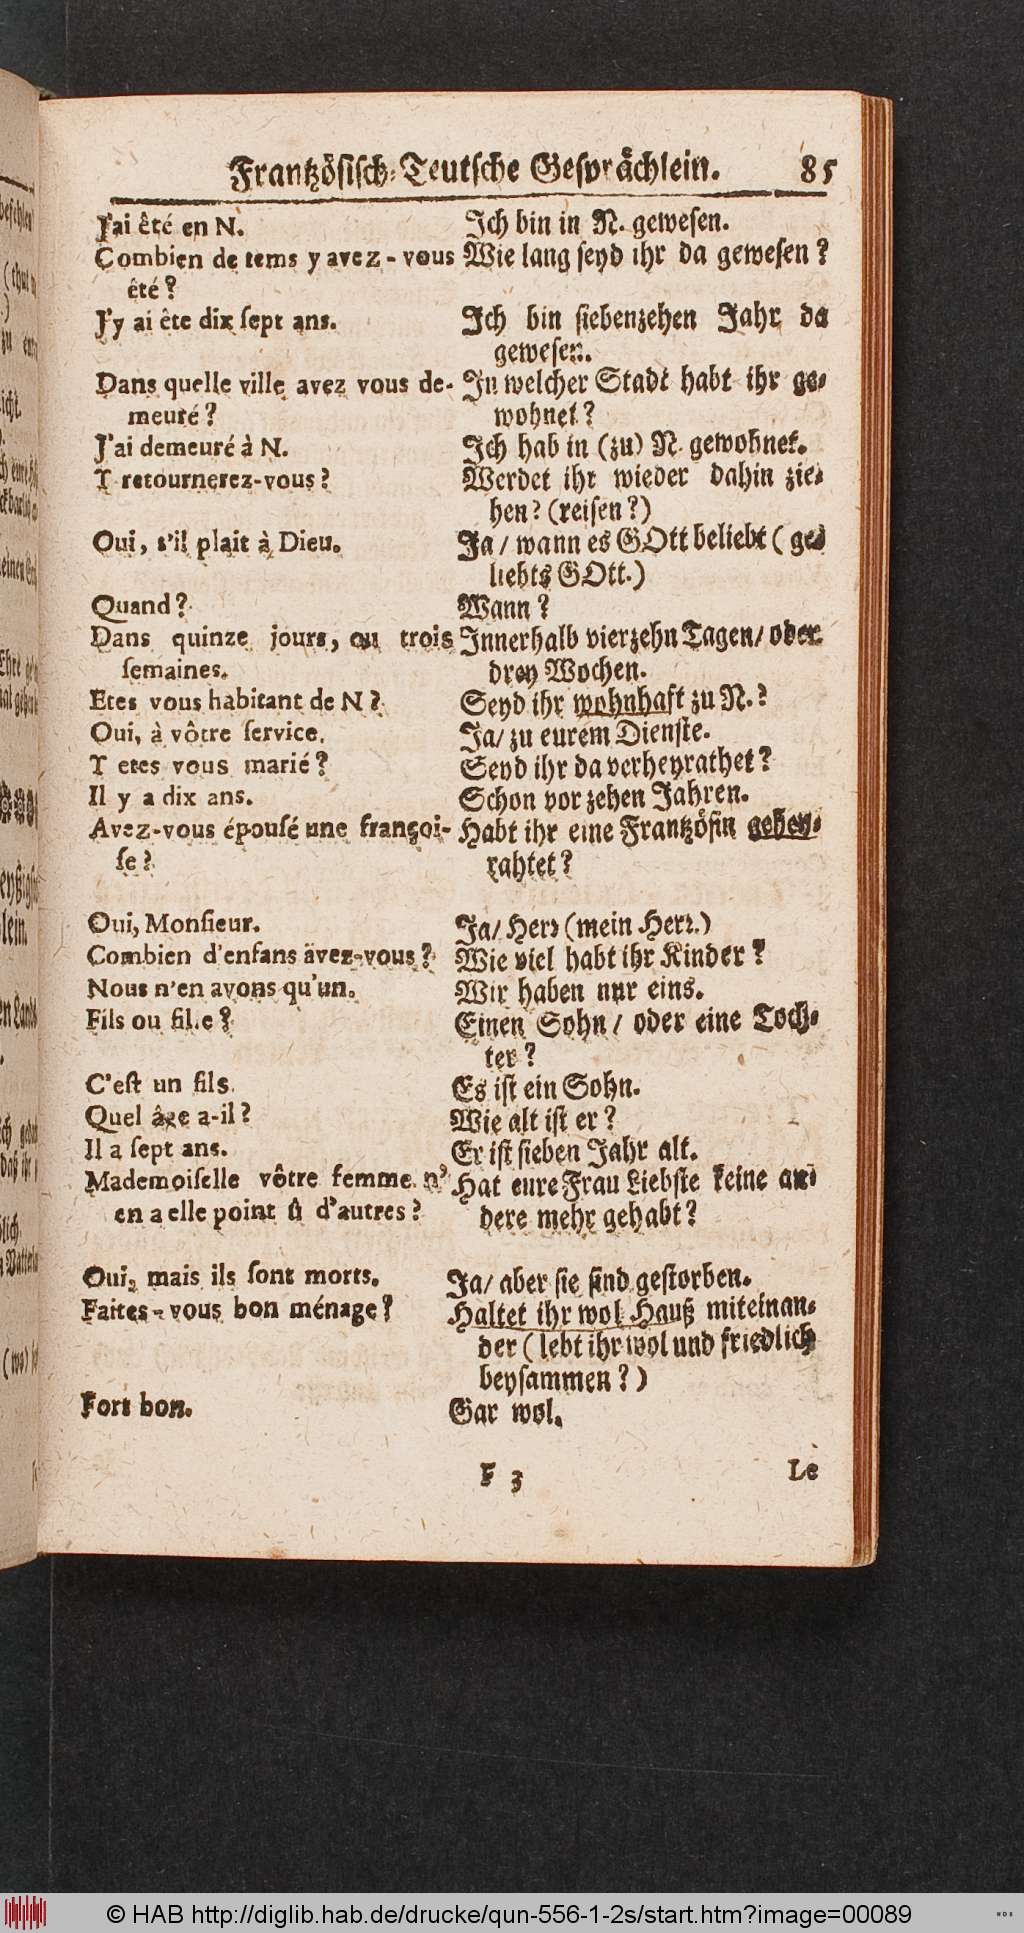 Frantzösisch-Teutsche Gesprächlein. 85
J'ai êté en N.
Combien de tems y avez-vous
êté?
J'y ai ête dix sept ans.
Dans quelle ville avez vous de-
meuré?
J'ai demeuré à N.
Y retournerez-vous?
Oui, s'il plait à Dieu.
Quand?
Dans quinze jours, ou trois
semaines.
Etes vous habitant de N?
Oui, à vôtre service.
Y etes vous marié?
Il y a dix ans.
Avez-vous épousé une françoi-
se?
Oui, Monsieur.
Combien d'enfans avez-vous?
Nous n'en avons qu'un.
Fils ou fille?
C'est un fils.
Quel âge a-il?
Il a sept ans.
Mademoiselle vôtre femme n'
en a elle point û d'autres?
Oui, mais ils sont morts.
Faites-vous bon ménage?
Fort bon.
Ich bin in N. gewesen.
Wie lang seyd ihr da gewesen?
Ich bin siebenzehen Jahr da
gewesen.
In welcher Stadt habt ihr ge-
wohnet?
Ich hab in (zu) N. gewohnet.
Werdet ihr wieder dahin zie-
hen? (reisen?)
Ja/ wann es GOtt beliebt (ge-
liebts GOtt.)
Wann?
Innerhalb vierzehn Tagen/ oder
drey Wochen.
Seyd ihr wohnhaft zu N.?
Ja/ zu eurem Dienste.
Seyd ihr da verheyrathet?
Schon vor zehen Jahren.
Habt ihr eine Frantzösin gehey-
rahtet?
Ja/ Herr (mein Herr.)
Wie viel habt ihr Kinder?
Wir haben nur eins.
Einen Sohn/ oder eine Toch-
ter?
Es ist ein Sohn.
Wie alt ist er?
Er ist sieben Jahr alt.
Hat eure Frau Liebste keine an-
dere mehr gehabt?
Ja/ aber sie sind gestorben.
Haltet ihr wol Hauß miteinan-
der (lebt ihr wol und friedlich
beysammen?)
Gar wol.
F 3 Le
© HAB http://diglib.hab.de/drucke/qun-556-1-2s/start.htm?image=00089